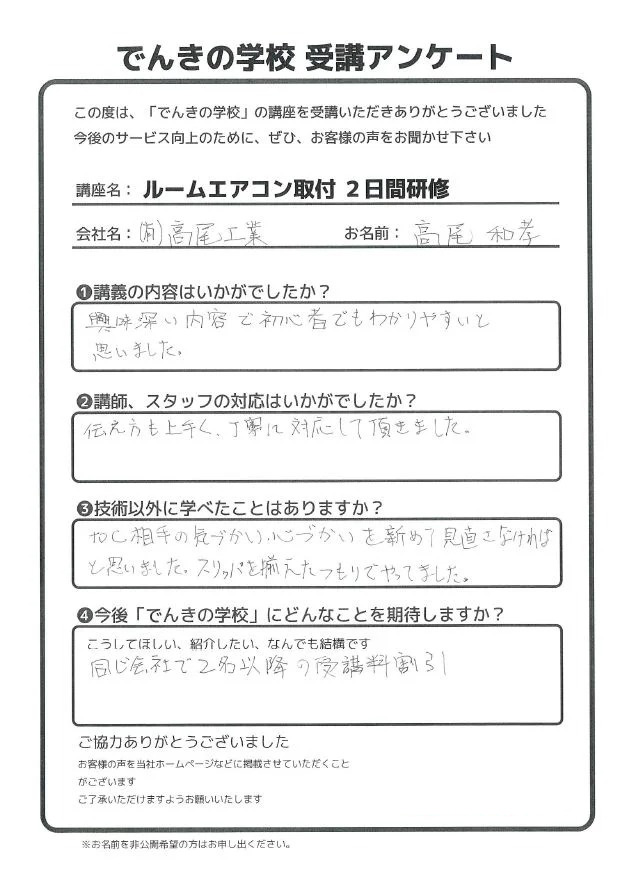 でんきの学校 受講アンケート
この度は、「でんきの学校」の講座を受講いただきありがとうございました
今後のサービス向上のために、ぜひ、お客様の声をお聞かせ下さい
講座名： ルームエアコン取付 ２日間研修
会社名： (有)高尾工業 お名前： 高尾 和孝
❶講義の内容はいかがでしたか？
興味深い内容で初心者でもわかりやすいと
思いました。
❷講師、スタッフの対応はいかがでしたか？
伝え方も上手く、丁寧に対応して頂きました。
❸技術以外に学べたことはありますか？
相手の気づかい、心づかいを新めて見直さなければ
と思いました。スリッパを揃えたつもりでやってました。
❹今後「でんきの学校」にどんなことを期待しますか？
こうしてほしい、紹介したい、なんでも結構です
同じ会社で2名以降の受講料割引
ご協力ありがとうございました
お客様の声を当社ホームページなどに掲載させていただくこと
がございます
ご了承いただけますようお願いいたします
※お名前を非公開希望の方はお申し出ください。